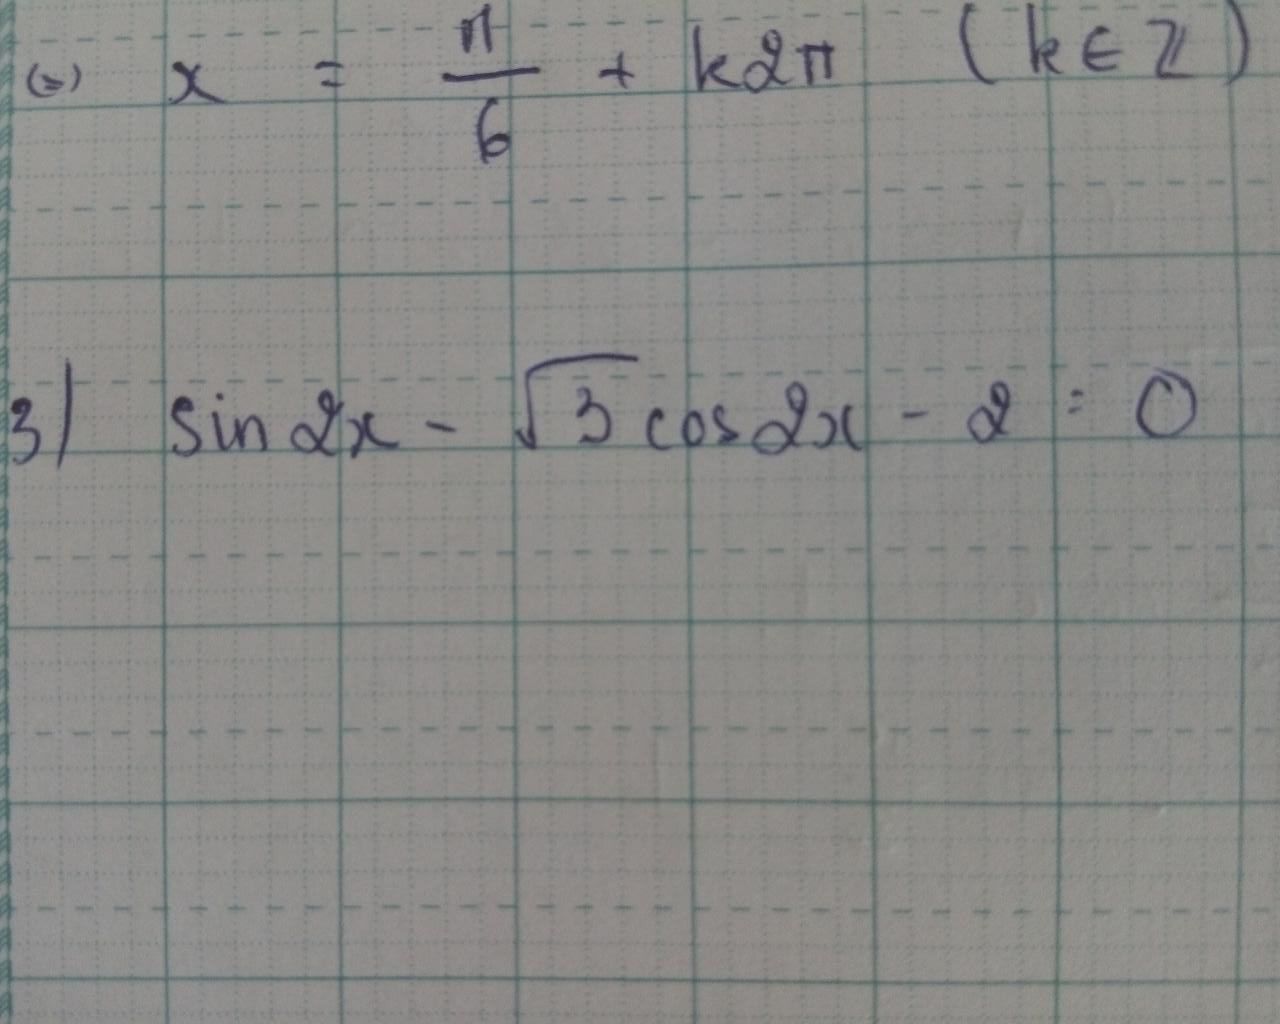 (=) x = π/6 + k2π (k ∈ ℤ)
3) sin 2x - √3 cos 2x - 2 = 0